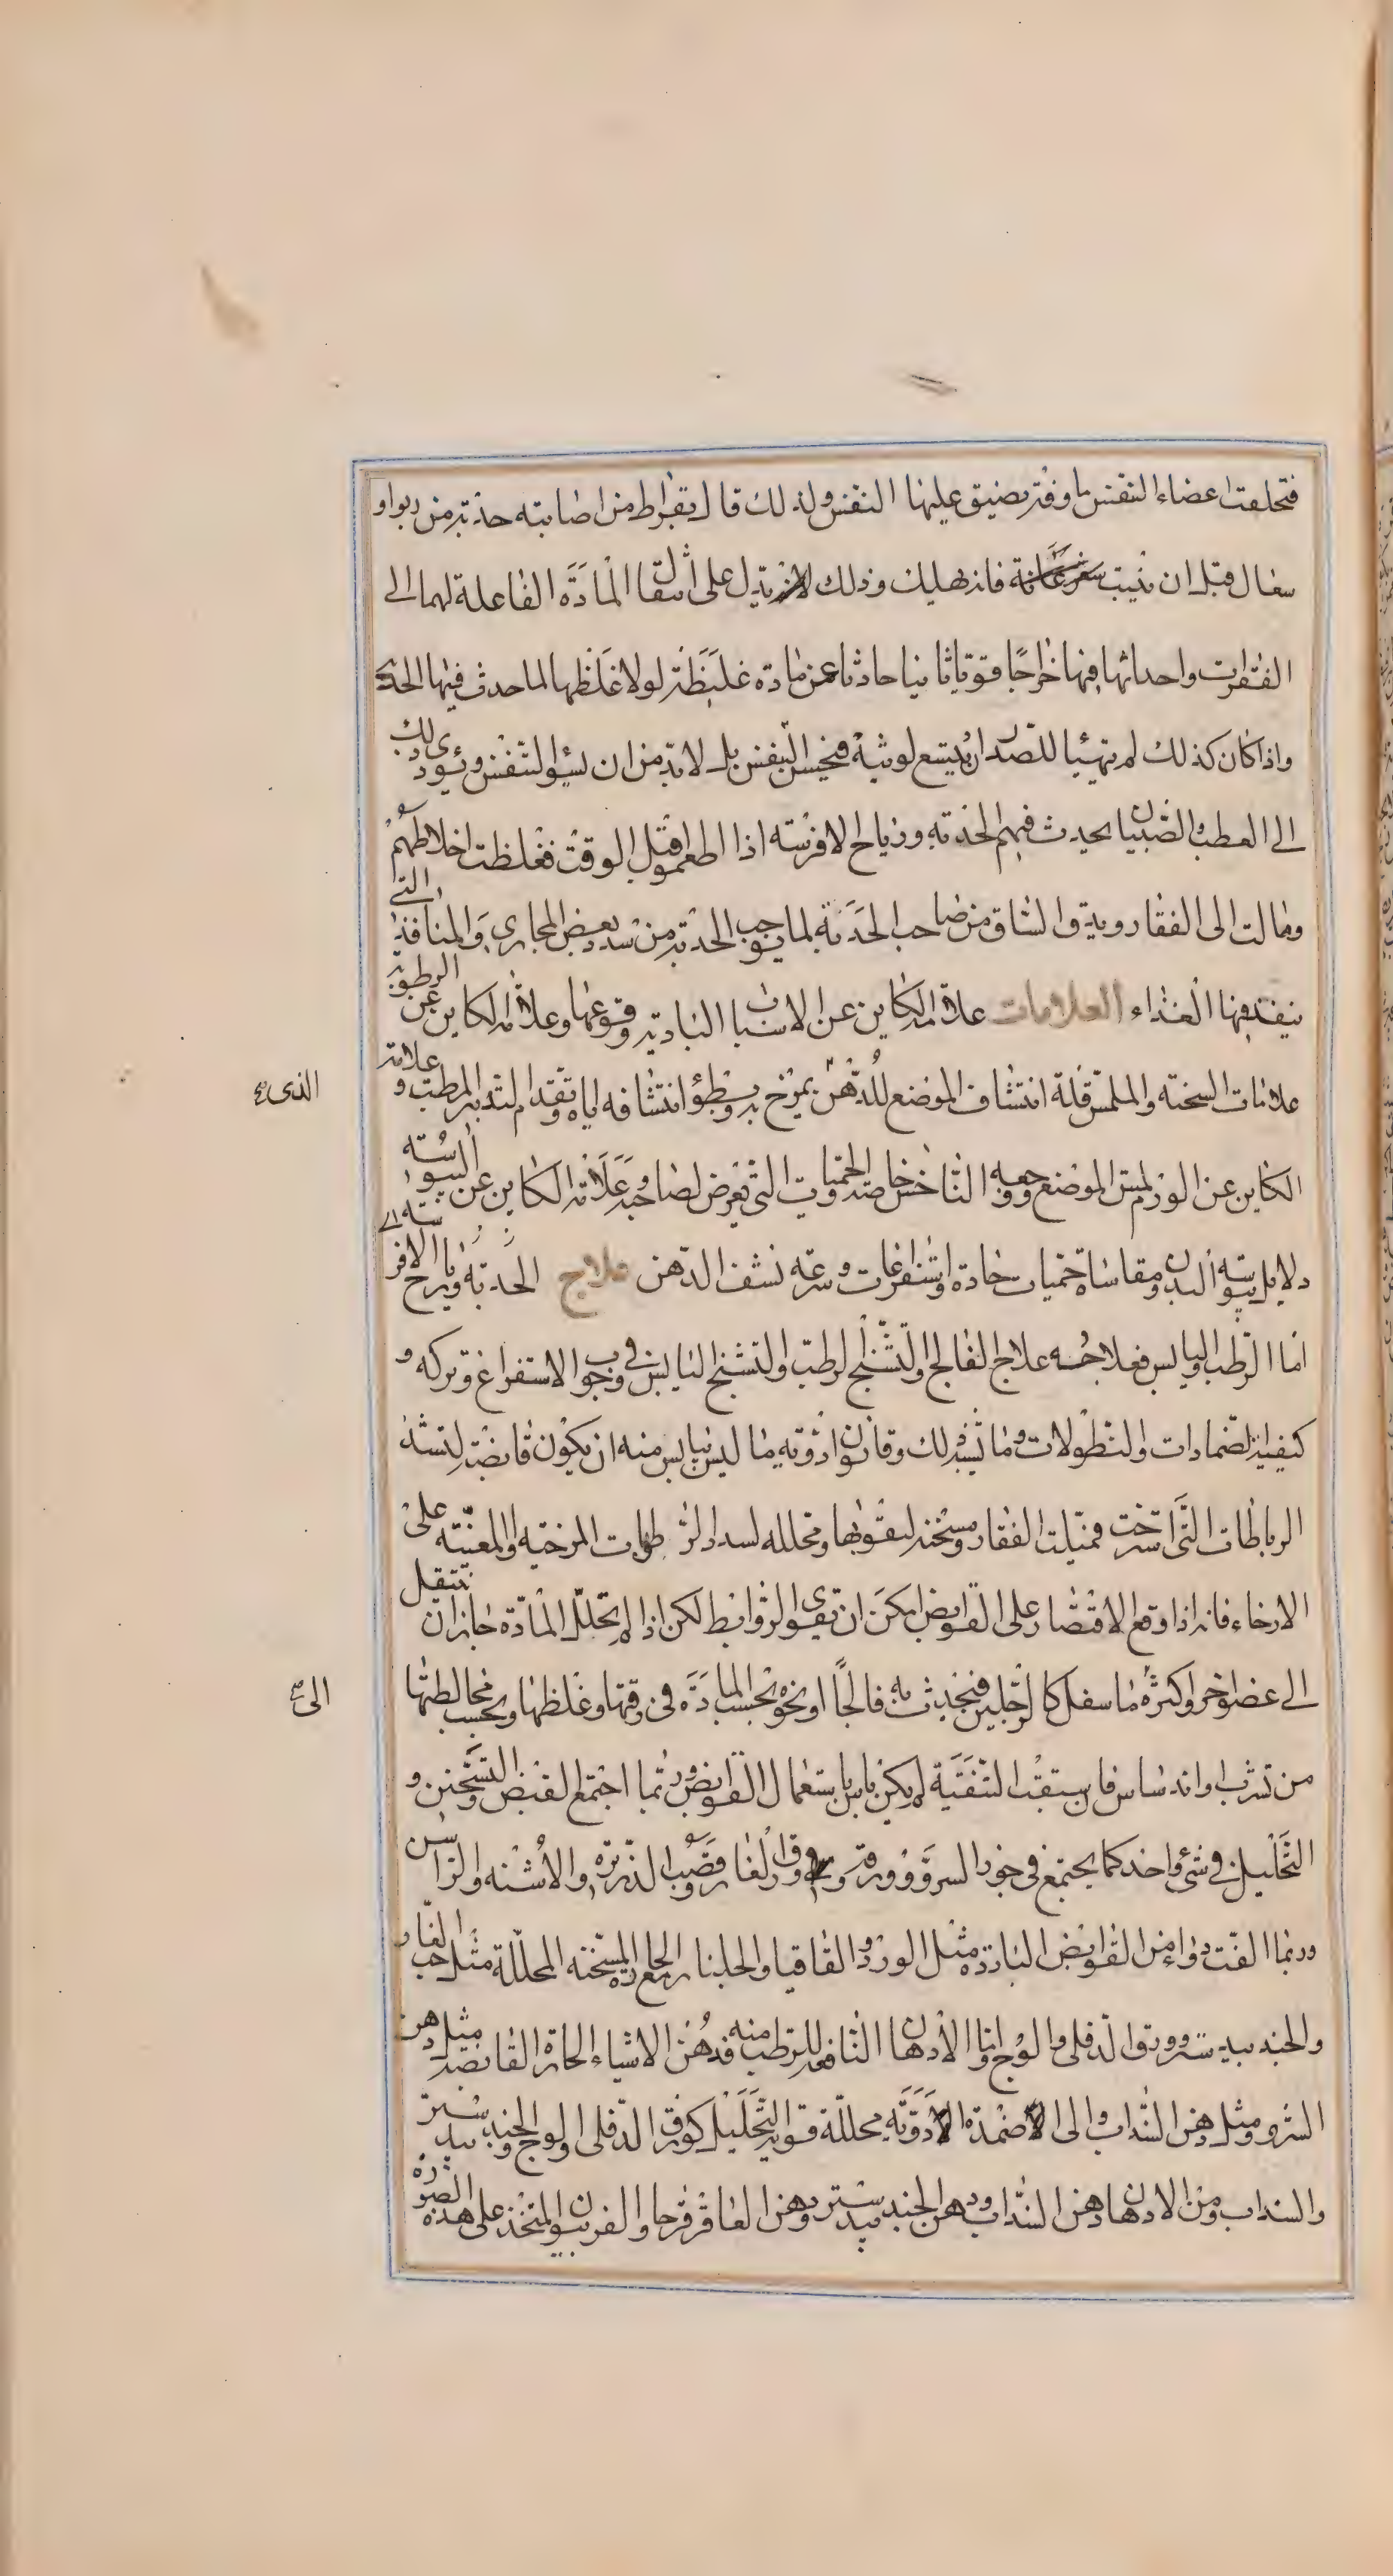 فتخلفت اعضاء التنفس ما وفتر يضيق عليها النفس ولذلك قال بقراط من اصابته حدبة من ربو او
سعال قبل ان ينبت شعر عانته فانه يهلك وذلك لانه يدل على انتقال المادة الفاعلة لهما الى
الفقرات واحداثها فيها خراجا قويا ثانيا حادثا عن مادة غليظة لولا غلظها لما حدث فيها الحدبة
واذا كان كذلك لم يتهيأ للصدر ان يتسع لوثيه فيحسن التنفس بل لابد من ان يسوء التنفس ويؤدى ذلك
الى العطب والصبيان يحدث فيهم الحدبة ورياح الافرسة اذا اطعموا قبل الوقت فغلظت اخلاطهم
ومالت الى الفقار ودقة الساق من صاحب الحدبة لما يوجب الحدبة من سد بعض المجارى والمنافذ التى
ينفذ فيها الغذاء العلامات علامة الكاين عن الاسباب البادية وقوعها وعلامة الكاين عن الرطوبة
علامات السحنة والملمس وقلة انتشاف الموضع للدهن يمرخ به وبطؤ انتشافه اياه وتقدم التدبير المرطب وعلامة
الذى
الكاين عن الورم لمس الموضع ووجعه الناخس خاصة والحميات التى تعرض لصاحبه وعلامة الكاين عن اليبوسة
دلايل يبوسة البدن ومقاساة حميات حادة واستفراغات وسرعة نشف الدهن علاج الحدبة ورياح الافرسة
اما الرطب واليابس فعلاجه علاج الفالج والتشنج الرطب والتشنج اليابس فى وجوب الاستفراغ وتركه و
كيفية الضمادات والنطولات وما يشبه ذلك وقانون ادوية ما ليس بيابس منه ان يكون قابضة لتشد
الرباطات التى استرخت فميلت الفقار ومسخنة لتقويها ومحللة لسداد الرطوبات المرخية والمعينة على
الارخاء فانه اذا وقع الاقتصار على القوابض امكن ان تقوى الروابط لكن اذا لم تحلل المادة جاز ان تنتقل
الى عضو اخر واكثره ما سفل كالرجلين فيحدث به فالجا او نحوه بحسب المادة فى رقتها وغلظها وبحسب مخالطتها
الى
من تشرب واندساس فان سبقت التنقية لم يكن باس باستعمال القوابض وربما اجتمع القبض والتسخين و
التحليل فى شئ واحد كما يجتمع فى جوز السرو وورقه وورق الغار وقصب الذريرة والاشنة والراسن
وربما الفت دواء من القوابض الباردة مثل الورد والقاقيا والجلنار مع الحارة المسخنة المحللة مثل حب الغار
والجندبيدستر وورق الدفلى والوج واما الادهان النافعة للرطب منه فدهن الاشياء الحارة القابضة مثل دهن
السرو ومثل دهن السذاب والى الاضمدة الادوية محللة قوية التحليل كورق الدفلى والوج والجندبيدستر
والسذاب ومن الادهان دهن السذاب ودهن الجندبيدستر ودهن العاقرقرحا والفربيون المتخذ على هذه الصورة